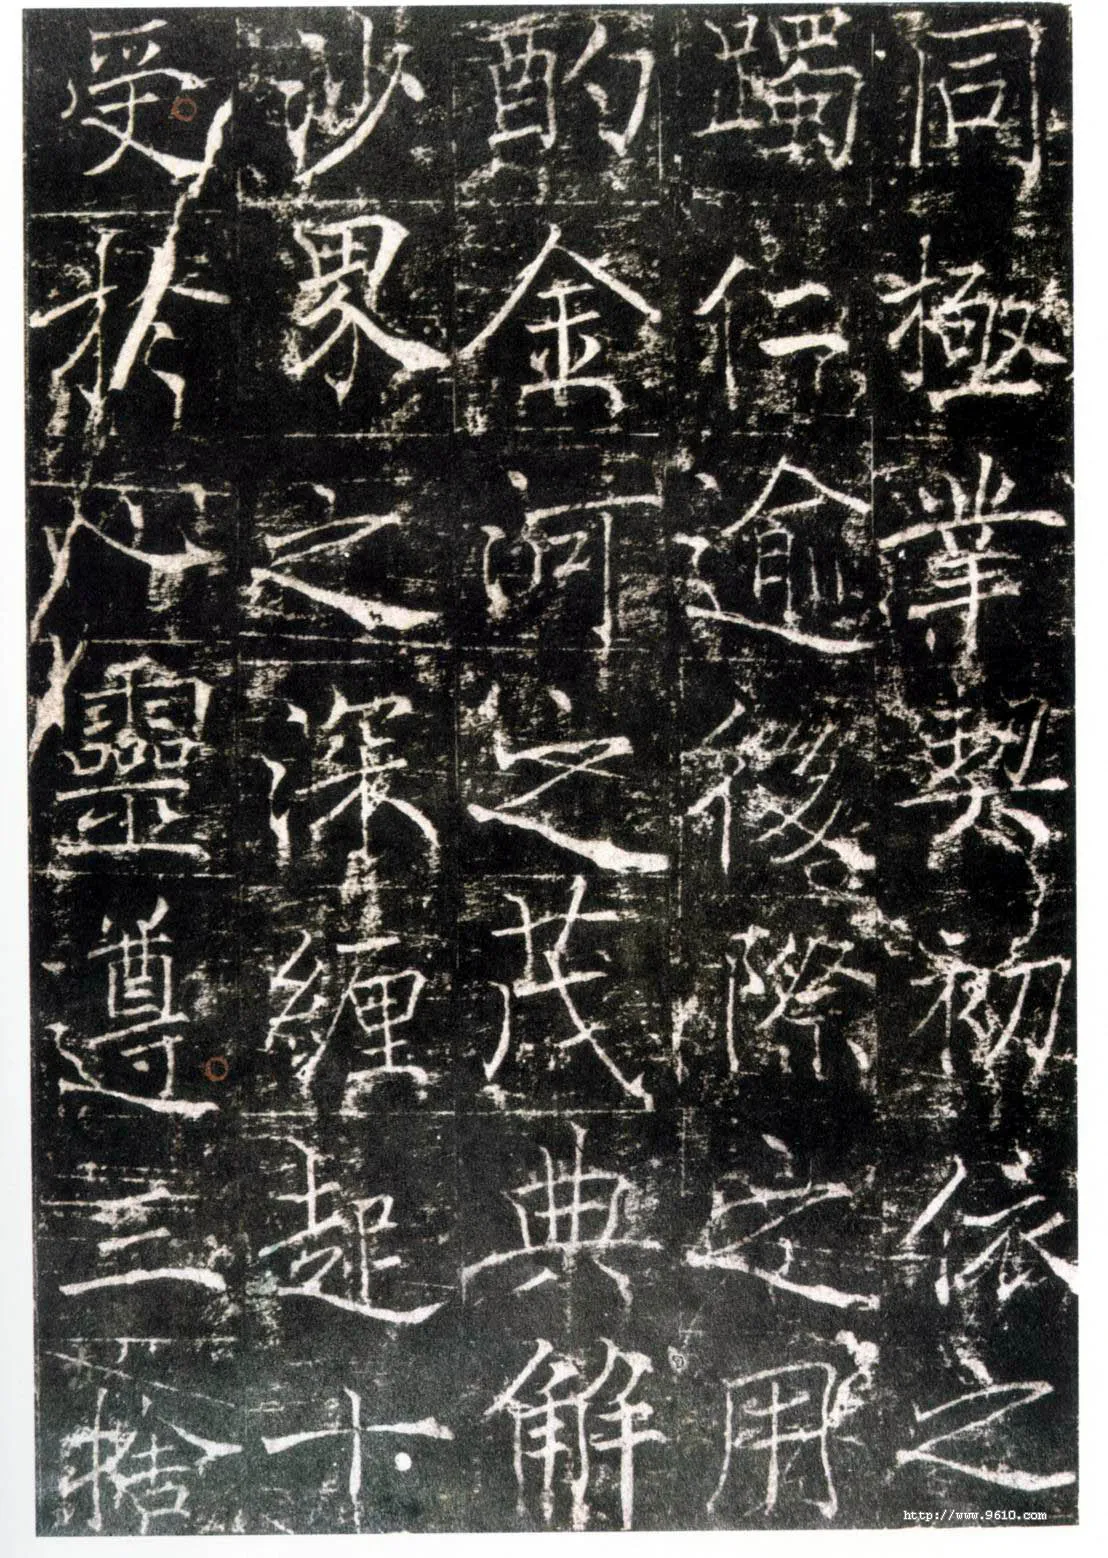 同極業契初依之
躅仁逾後際之用
酌金河之茂典解
沙界之深纏超十
受於凡靈遵三捨
http://www.9610.com